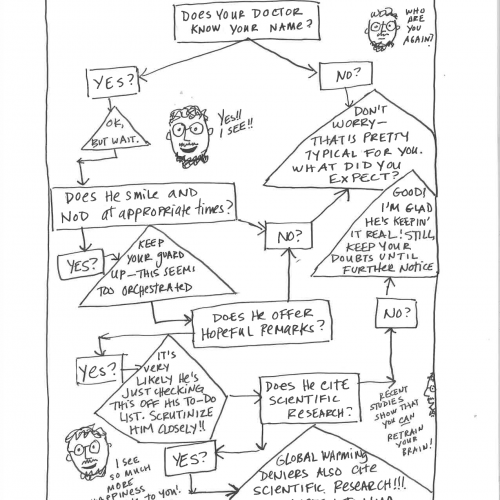 DOES YOUR DOCTOR
KNOW YOUR NAME?
WHO
ARE
YOU
AGAIN?
YES?
NO?
OK,
BUT WAIT.
YES!!
I SEE!!
DON'T
WORRY—
THAT'S PRETTY
TYPICAL FOR YOU.
WHAT DID YOU
EXPECT?
DOES HE SMILE AND
NOD at appropriate times?
NO?
GOOD!
I'M GLAD
HE'S KEEPIN'
IT REAL! STILL,
KEEP YOUR
DOUBTS UNTIL
FURTHER NOTICE
YES?
KEEP
YOUR GUARD
UP—THIS SEEMS
TOO ORCHESTRATED
DOES HE OFFER
HOPEFUL REMARKS?
NO?
YES?
IT'S
VERY
LIKELY HE'S
JUST CHECKING
THIS OFF HIS TO-DO
LIST. SCRUTINIZE
HIM CLOSELY!!
DOES HE CITE
SCIENTIFIC
RESEARCH?
RECENT
STUDIES
SHOW THAT
YOU CAN
RETRAIN
YOUR
BRAIN!
YES?
I SEE
SO MUCH
MORE
HAPPINESS
TO YOU!
GLOBAL WARMING
DENIERS ALSO CITE
SCIENTIFIC RESEARCH!!!